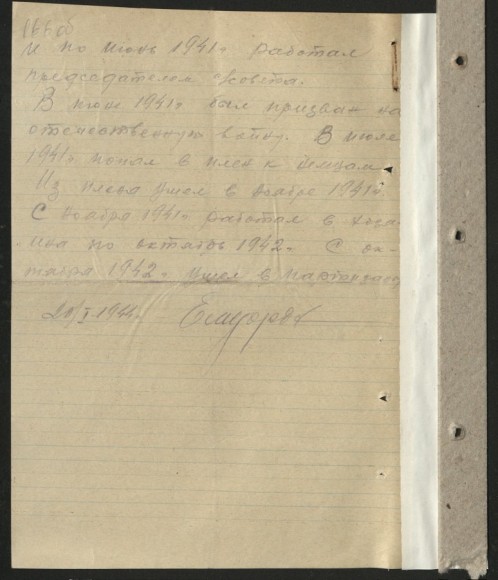 166об
и по июнь 1941г работал
председателем совета.
В июне 1941г был призван на
отечественную войну. В июле
1941г попал в плен к немцам
Из плена ушел в ноябре 1941г.
С ноября 1941г работал в
по октябрь 1942г. С ок-
тября 1942г ушел в партизаны
1944г.